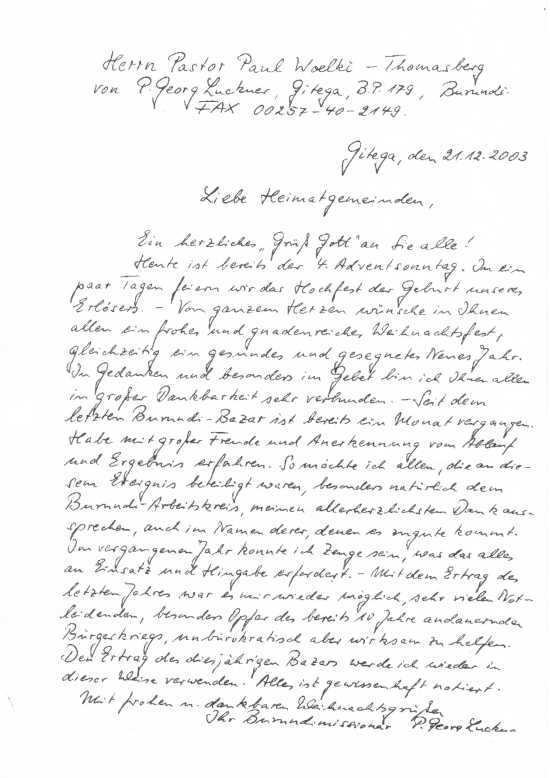 Herrn Pastor Paul Woelki – Thomasberg
von P. Georg Luckner, Gitega, B.P. 179, Burundi.
FAX 00257-40-2149.
Gitega, den 21.12.2003
Liebe Heimatgemeinden,
Ein herzliches „Grüß Gott" an Sie alle!
Heute ist bereits der 4. Adventsonntag. In ein
paar Tagen feiern wir das Hochfest der Geburt unseres
Erlösers. – Von ganzem Herzen wünsche in Ihnen
allen ein frohes und gnadenreiches Weihnachtsfest,
gleichzeitig ein gesundes und gesegnetes Neues Jahr.
In Gedanken und besonders im Gebet bin ich Ihnen allen
in großer Dankbarkeit sehr verbunden. – Seit dem
letzten Burundi-Bazar ist bereits ein Monat vergangen.
Habe mit großer Freude und Anerkennung vom Ablauf
und Ergebnis erfahren. So möchte ich allen, die an die-
sem Ereignis beteiligt waren, besonders natürlich dem
Burundi-Arbeitskreis, meinen allerherzlichsten Dank aus-
sprechen, auch im Namen derer, denen es zugute kommt.
Im vergangenen Jahr konnte ich Zeuge sein, was das alles
an Einsatz und Hingabe erfordert. – Mit dem Ertrag des
letzten Jahres war es mir wieder möglich, sehr vielen Not-
leidenden, besonders Opfer des bereits 10 Jahre andauernden
Bürgerkriegs, unbürokratisch aber wirksam zu helfen.
Den Ertrag des diesjährigen Bazars werde ich wieder in
dieser Weise verwenden. Alles ist gewissenhaft notiert.
Mit frohen u. dankbaren Weihnachtsgrüßen
Ihr Burundimissionar P. Georg Luckner